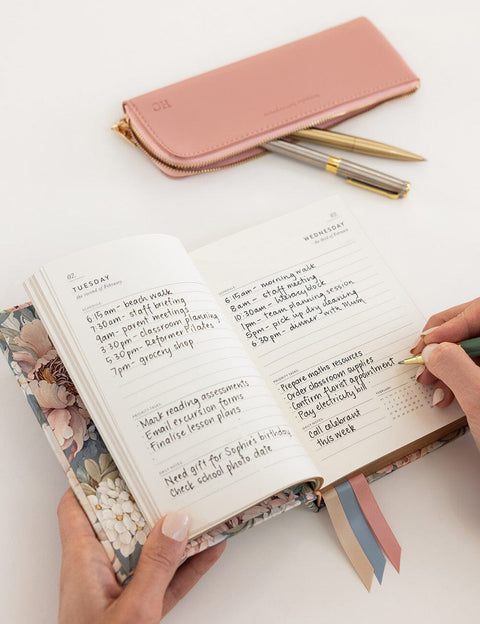 HC
02
TUESDAY
the second of February
SCHEDULE
6:15am - beach walk
7:30am - staff briefing
9am - parent meetings
3:30pm - classroom planning
5:30pm - Reformer Pilates
7pm - grocery shop
PRIORITY TASKS
Mark reading assessments
Email excursion forms
Finalise lesson plans
DAILY NOTES
Need gift for Sophie's birthday
Check school photo date
03
WEDNESDAY
the third of February
6:15am - morning walk
8am - staff meeting
10.30am - literacy block
1pm - team planning session
5pm - pick up dry cleaning
6.30pm - dinner with Mum
PRIORITY TASKS
Prepare maths resources
Order classroom supplies
Confirm florist appointment
Pay electricity bill
DAILY NOTES
Call celebrant
this week
FEBRUARY